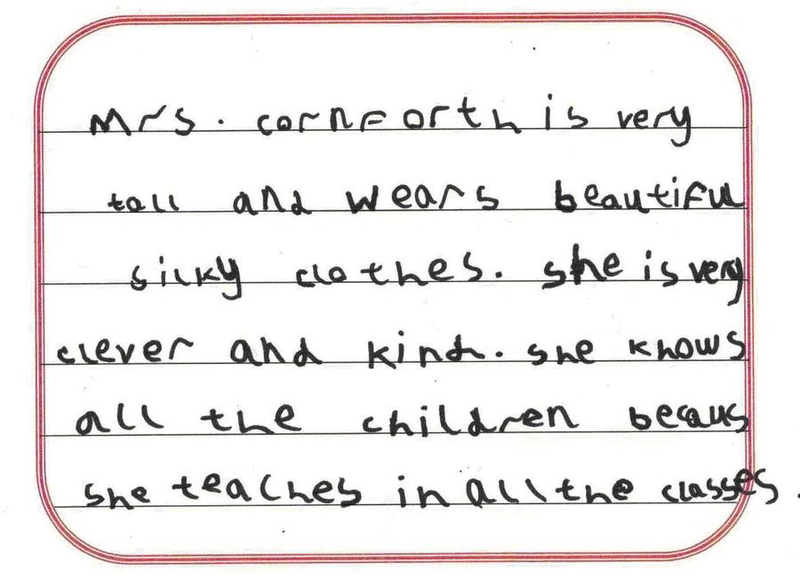 Mrs. cornForth is very
tall and wears beautiful
silky clothes. she is very
clever and kind. she knows
all the children becaus
she teaches in all the classes.